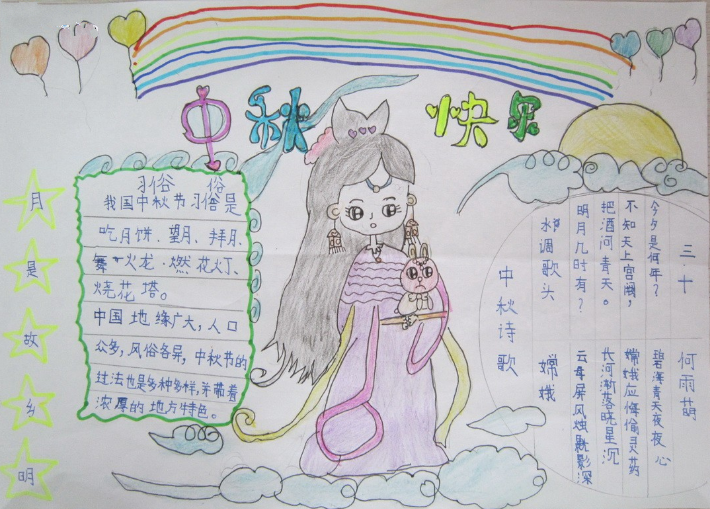 中秋 快乐
月是故乡明
习俗 俗
我国中秋节习俗是
吃月饼、望月、拜月、
舞火龙、燃花灯、
烧花塔。
中国地缘广大，人口
众多，风俗各异，中秋节的
过法也是多种多样，并带着
浓厚的地方特色。
三十
何雨萌
今夕是何年？
不知天上宫阙，
把酒问青天。
明月几时有？
水调歌头
中秋诗歌
碧海青天夜夜心
嫦娥应悔偷灵药
长河渐落晓星沉
云母屏风烛影深
嫦娥